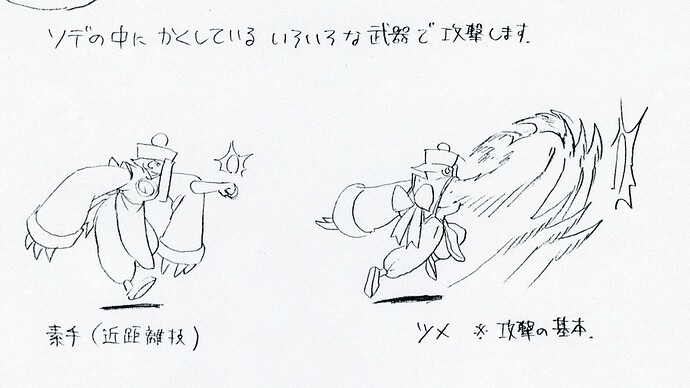 ソデの中に かくしている いろいろな武器で攻撃します.
素手(近距離技)
ツメ ※攻撃の基本.